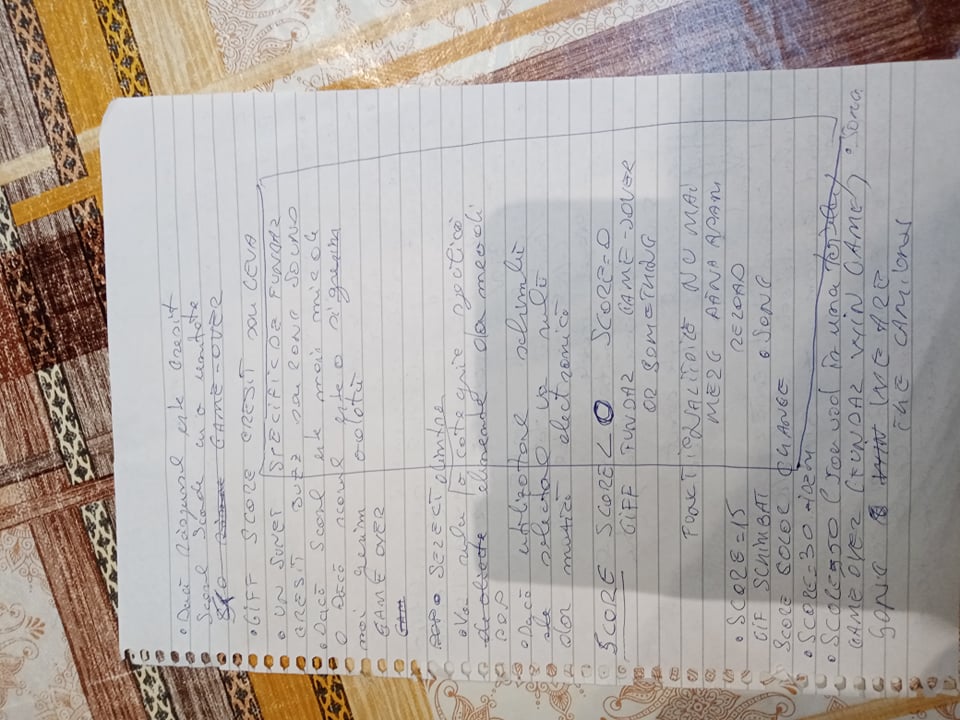 • Dacă răspunsul este gresit
Scorul scade cu o unitate
GAME-OVER
• GIFF SCORE GRESIT SAU CEVA
• UN SUNET SPECIFIC DE FUNDAZ
GRESIT BUZZ SAU RONG SOUND
• Dacă Scorul este mai mic de
0 Dacă scorul este 0 si gresim
mai gresim odată
GAME OVER
GAM
• SELECT dintre
• Va rula o categorie specifică
de obiecte elimente doar melodi
POP
• Dacă utilizatorul schimbă
selectul va rula
doar muzică electronică
SCORE SCORE < 0 SCORE=0
GIFF FUNDAZ GAME-OVER
OR SOMETHING
FUNCTIONALITĂȚILE NU MAI
MERG PÂNĂ APAM
• SCORE=15 RELOAD
GIF SCHIMBAT • SONG
SCORE COLOR CHANGE
• SCORE=30 idem
• SCORE=50 (sau vad în una
GAME OVER (FUNDAZ WIN GAME) • SONG
SONG WIN WE ARE
THE